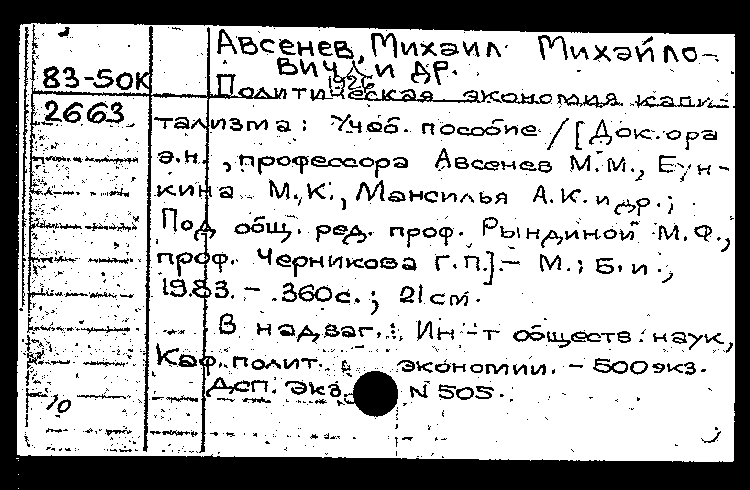 Авсенев, Михаил Михайло-
вич и др.
83-50К
Политическая экономия капи-
2663
тализма: Учеб. пособие / [Док.ора
э.н., профессора Авсенев М.М., Бун-
кина М.К., Мансилья А.К. и др.;
Под общ. ред. проф. Рындиной М.Ф.,
проф. Черникова Г.П.]. - М.: Б.и.,
1983. - 360с.; 21см.
В надзаг.: Ин-т обществ. наук,
Каф. полит. экономии. - 500экз.
Дсп. Экз. N 505.
10